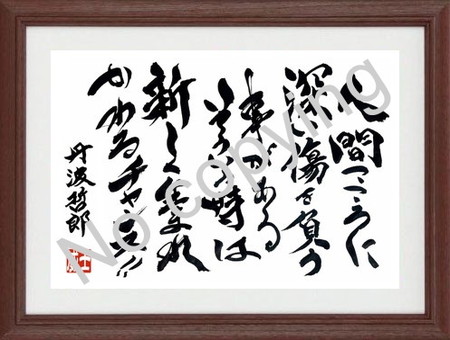 人間こころに
深い傷を負う
事がある
そうゆう時は
新しく生まれ
かわるチャンス!!
丹波哲郎
No copying